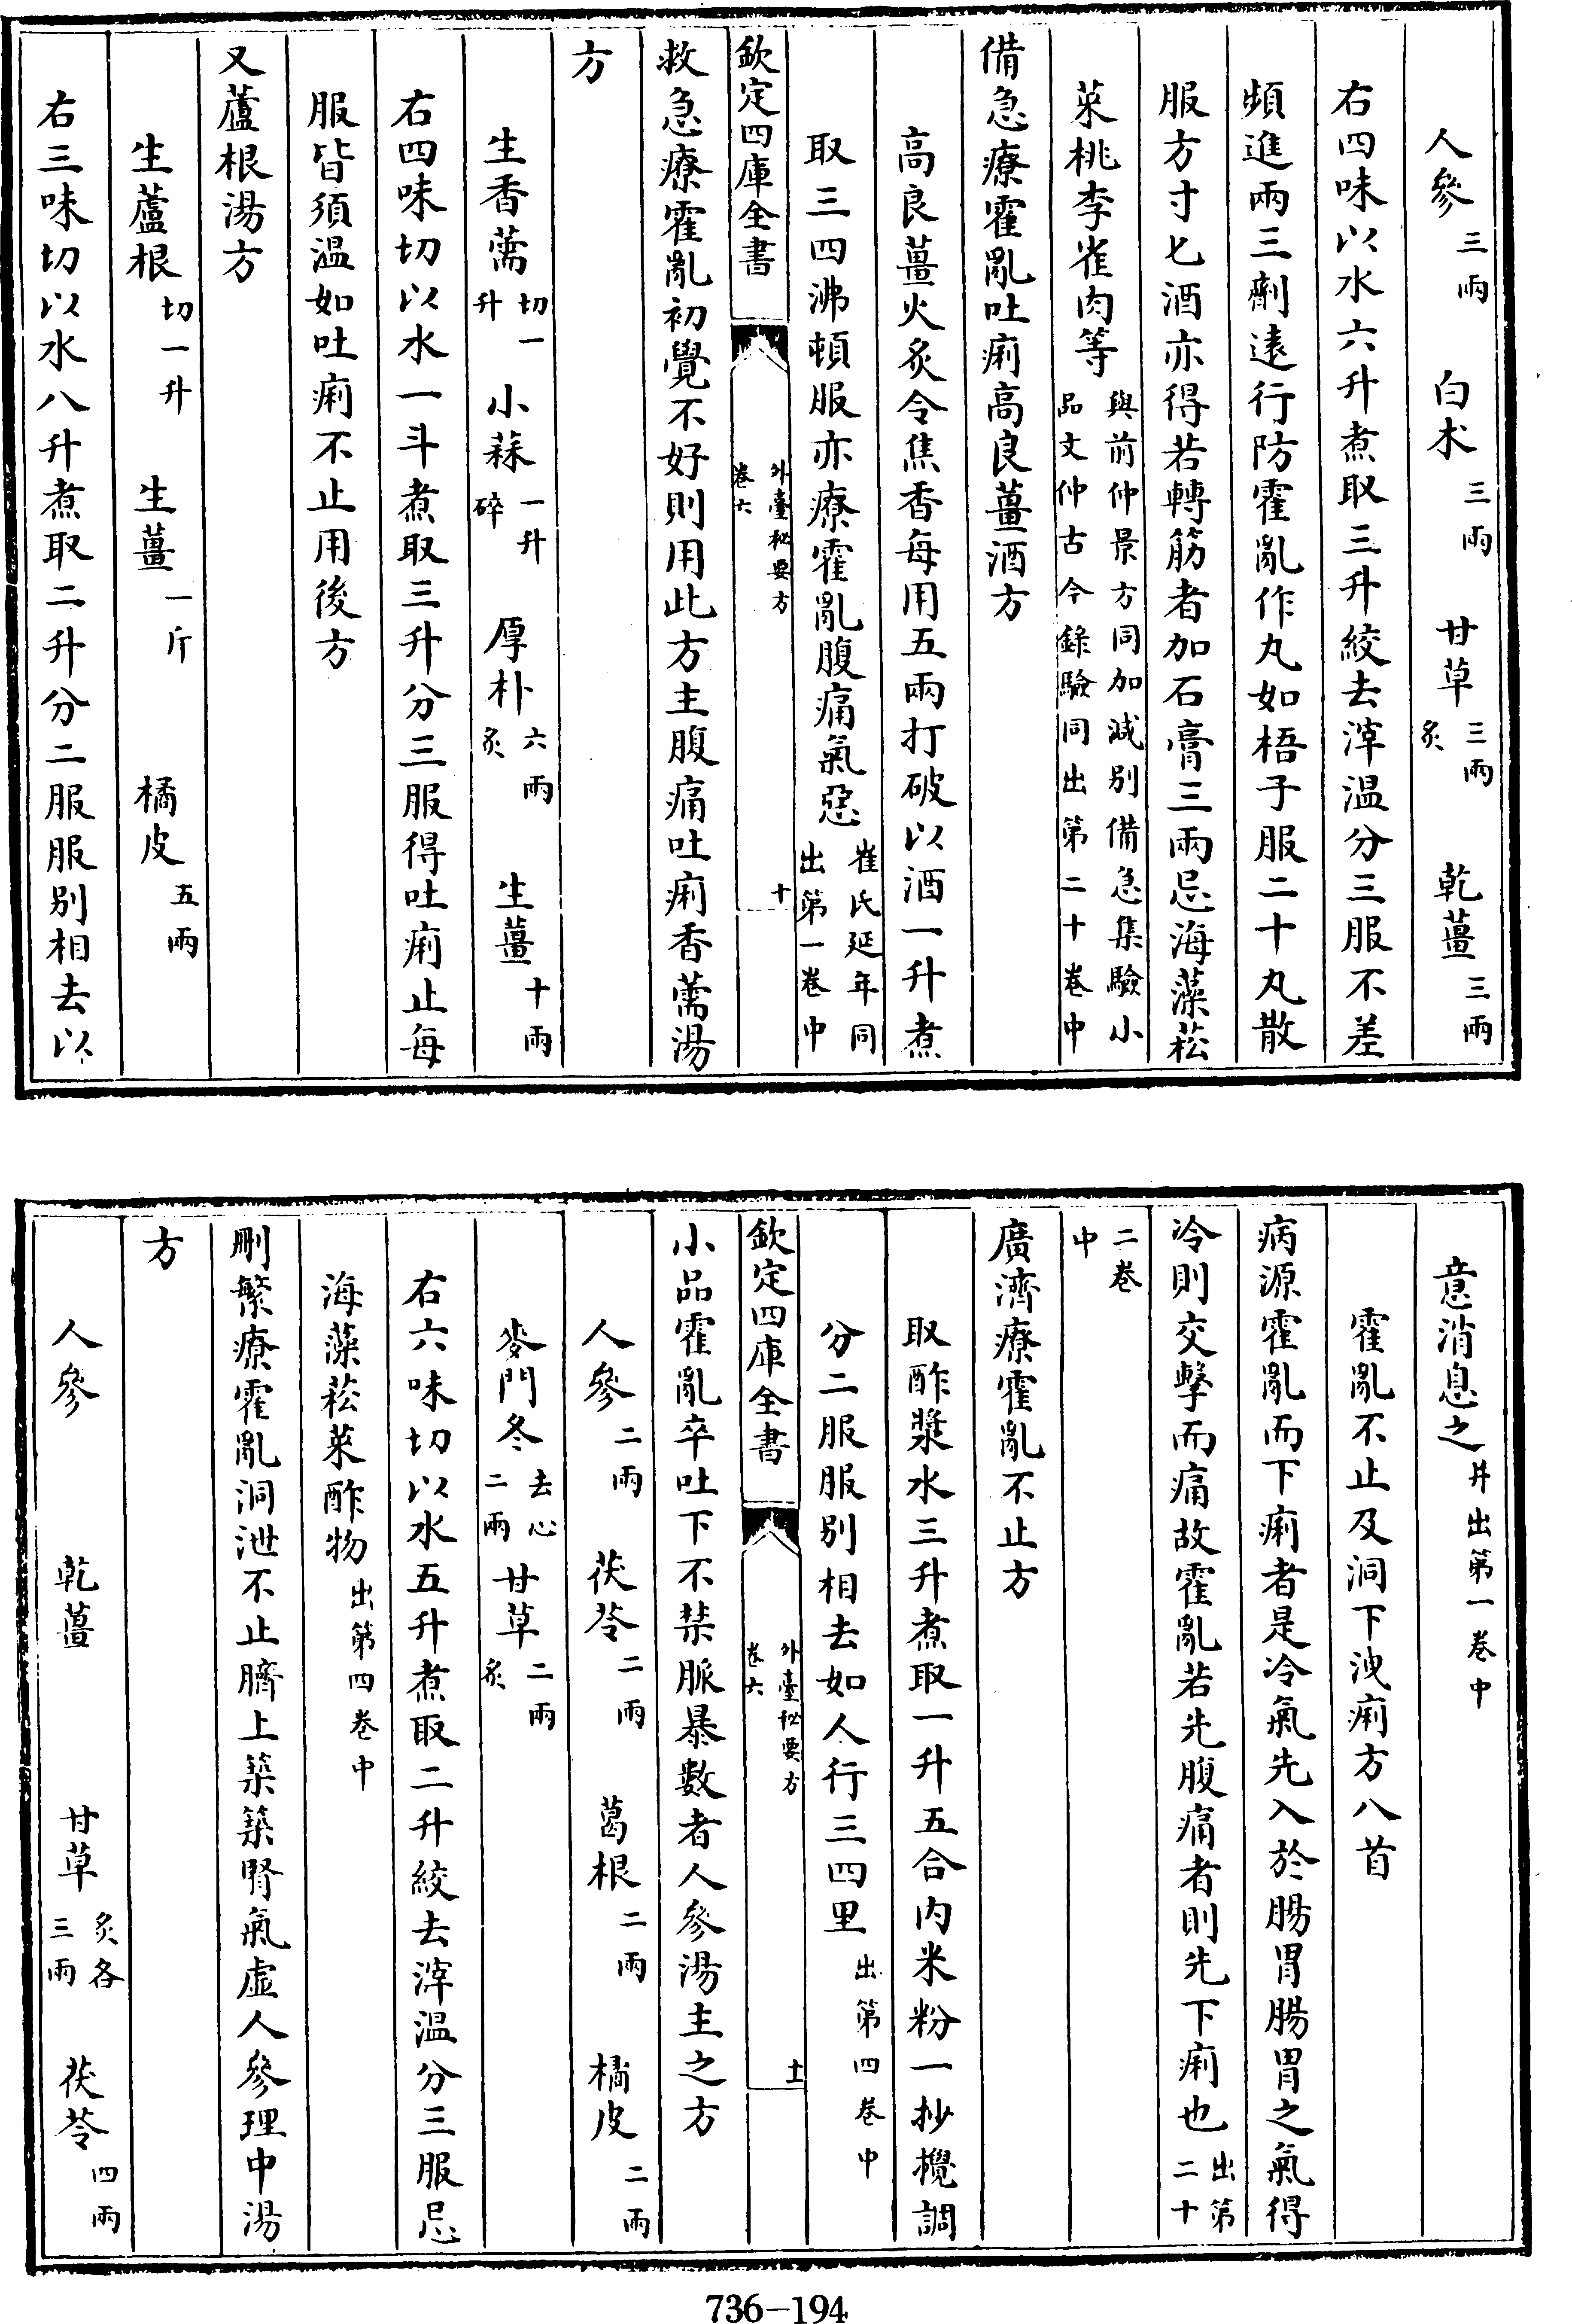 人參三兩　白朮三兩　甘草三兩炙　乾薑三兩
右四味以水六升煮取三升絞去滓温分三服不差
頻進兩三劑遠行防霍亂作丸如梧子服二十丸散
服方寸匕酒亦得若轉筋者加石膏三兩忌海藻菘
菜桃李雀肉等與前仲景方同加減别備急集驗小品文仲古今錄驗同出第二十卷中
備急療霍亂吐痢高良薑酒方
高良薑火炙令焦香每用五兩打破以酒一升煮
取三四沸頓服亦療霍亂腹痛氣惡崔氏延年同出第一卷中
欽定四庫全書　外臺秘要方卷六　十
救急療霍亂初覺不好則用此方主腹痛吐痢香薷湯
方
生香薷切一升　小蒜一升碎　厚朴六兩炙　生薑十兩
右四味切以水一斗煮取三升分三服得吐痢止每
服皆須温如吐痢不止用後方
又蘆根湯方
生蘆根切一升　生薑一斤　橘皮五兩
右三味切以水八升煮取二升分二服服别相去以
意消息之并出第一卷中
霍亂不止及洞下洩痢方八首
病源霍亂而下痢者是冷氣先入於腸胃腸胃之氣得
冷則交擊而痛故霍亂若先腹痛者則先下痢也出第二十
二卷中
廣濟療霍亂不止方
取酢漿水三升煮取一升五合内米粉一抄攪調
分二服服别相去如人行三四里出第四卷中
欽定四庫全書　外臺秘要方卷六　十一
小品霍亂卒吐下不禁脈暴數者人參湯主之方
人參二兩　茯苓二兩　葛根二兩　橘皮二兩
麥門冬去心二兩　甘草二兩炙
右六味切以水五升煮取二升絞去滓温分三服忌
海藻菘菜酢物出第四卷中
刪繁療霍亂洞泄不止臍上築築腎氣虛人參理中湯
方
人參　乾薑　甘草炙各三兩　茯苓四兩
736-194